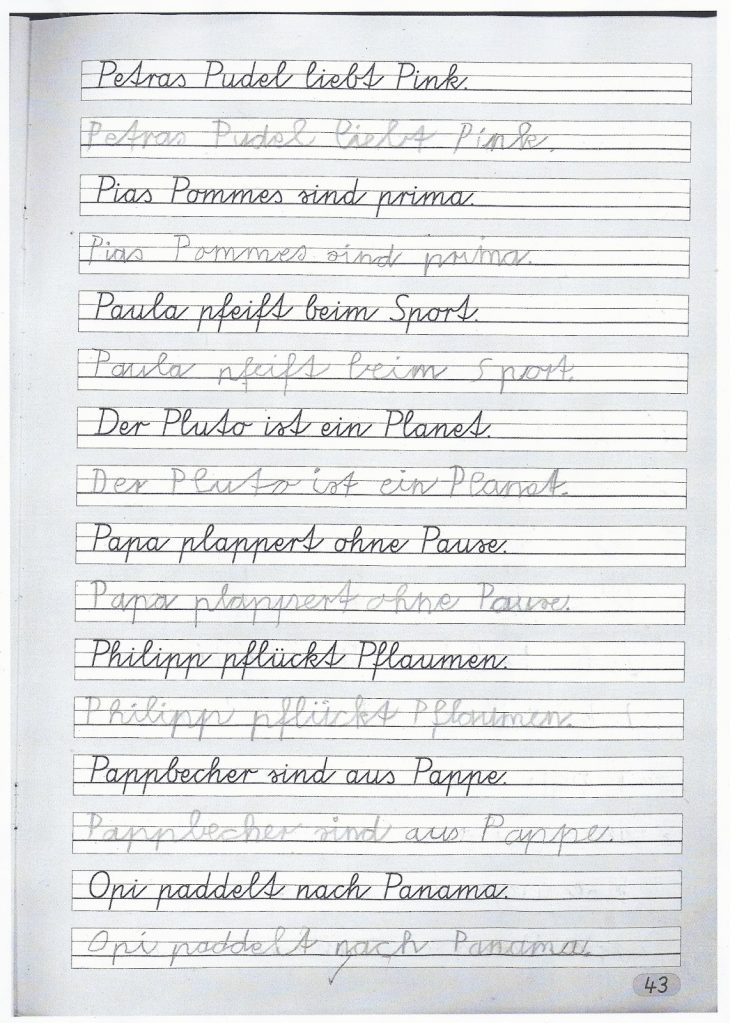 Petras Pudel liebt Pink.
Petras Pudel liebt Pink.
Pias Pommes sind prima.
Pias Pommes sind prima.
Paula pfeift beim Sport.
Paula pfeift beim Sport.
Der Pluto ist ein Planet.
Der Pluto ist ein Planet.
Papa plappert ohne Pause.
Papa plappert ohne Pause.
Philipp pflückt Pflaumen.
Philipp pflückt Pflaumen.
Pappbecher sind aus Pappe.
Pappbecher sind aus Pappe.
Opi paddelt nach Panama.
Opi paddelt nach Panama.
43